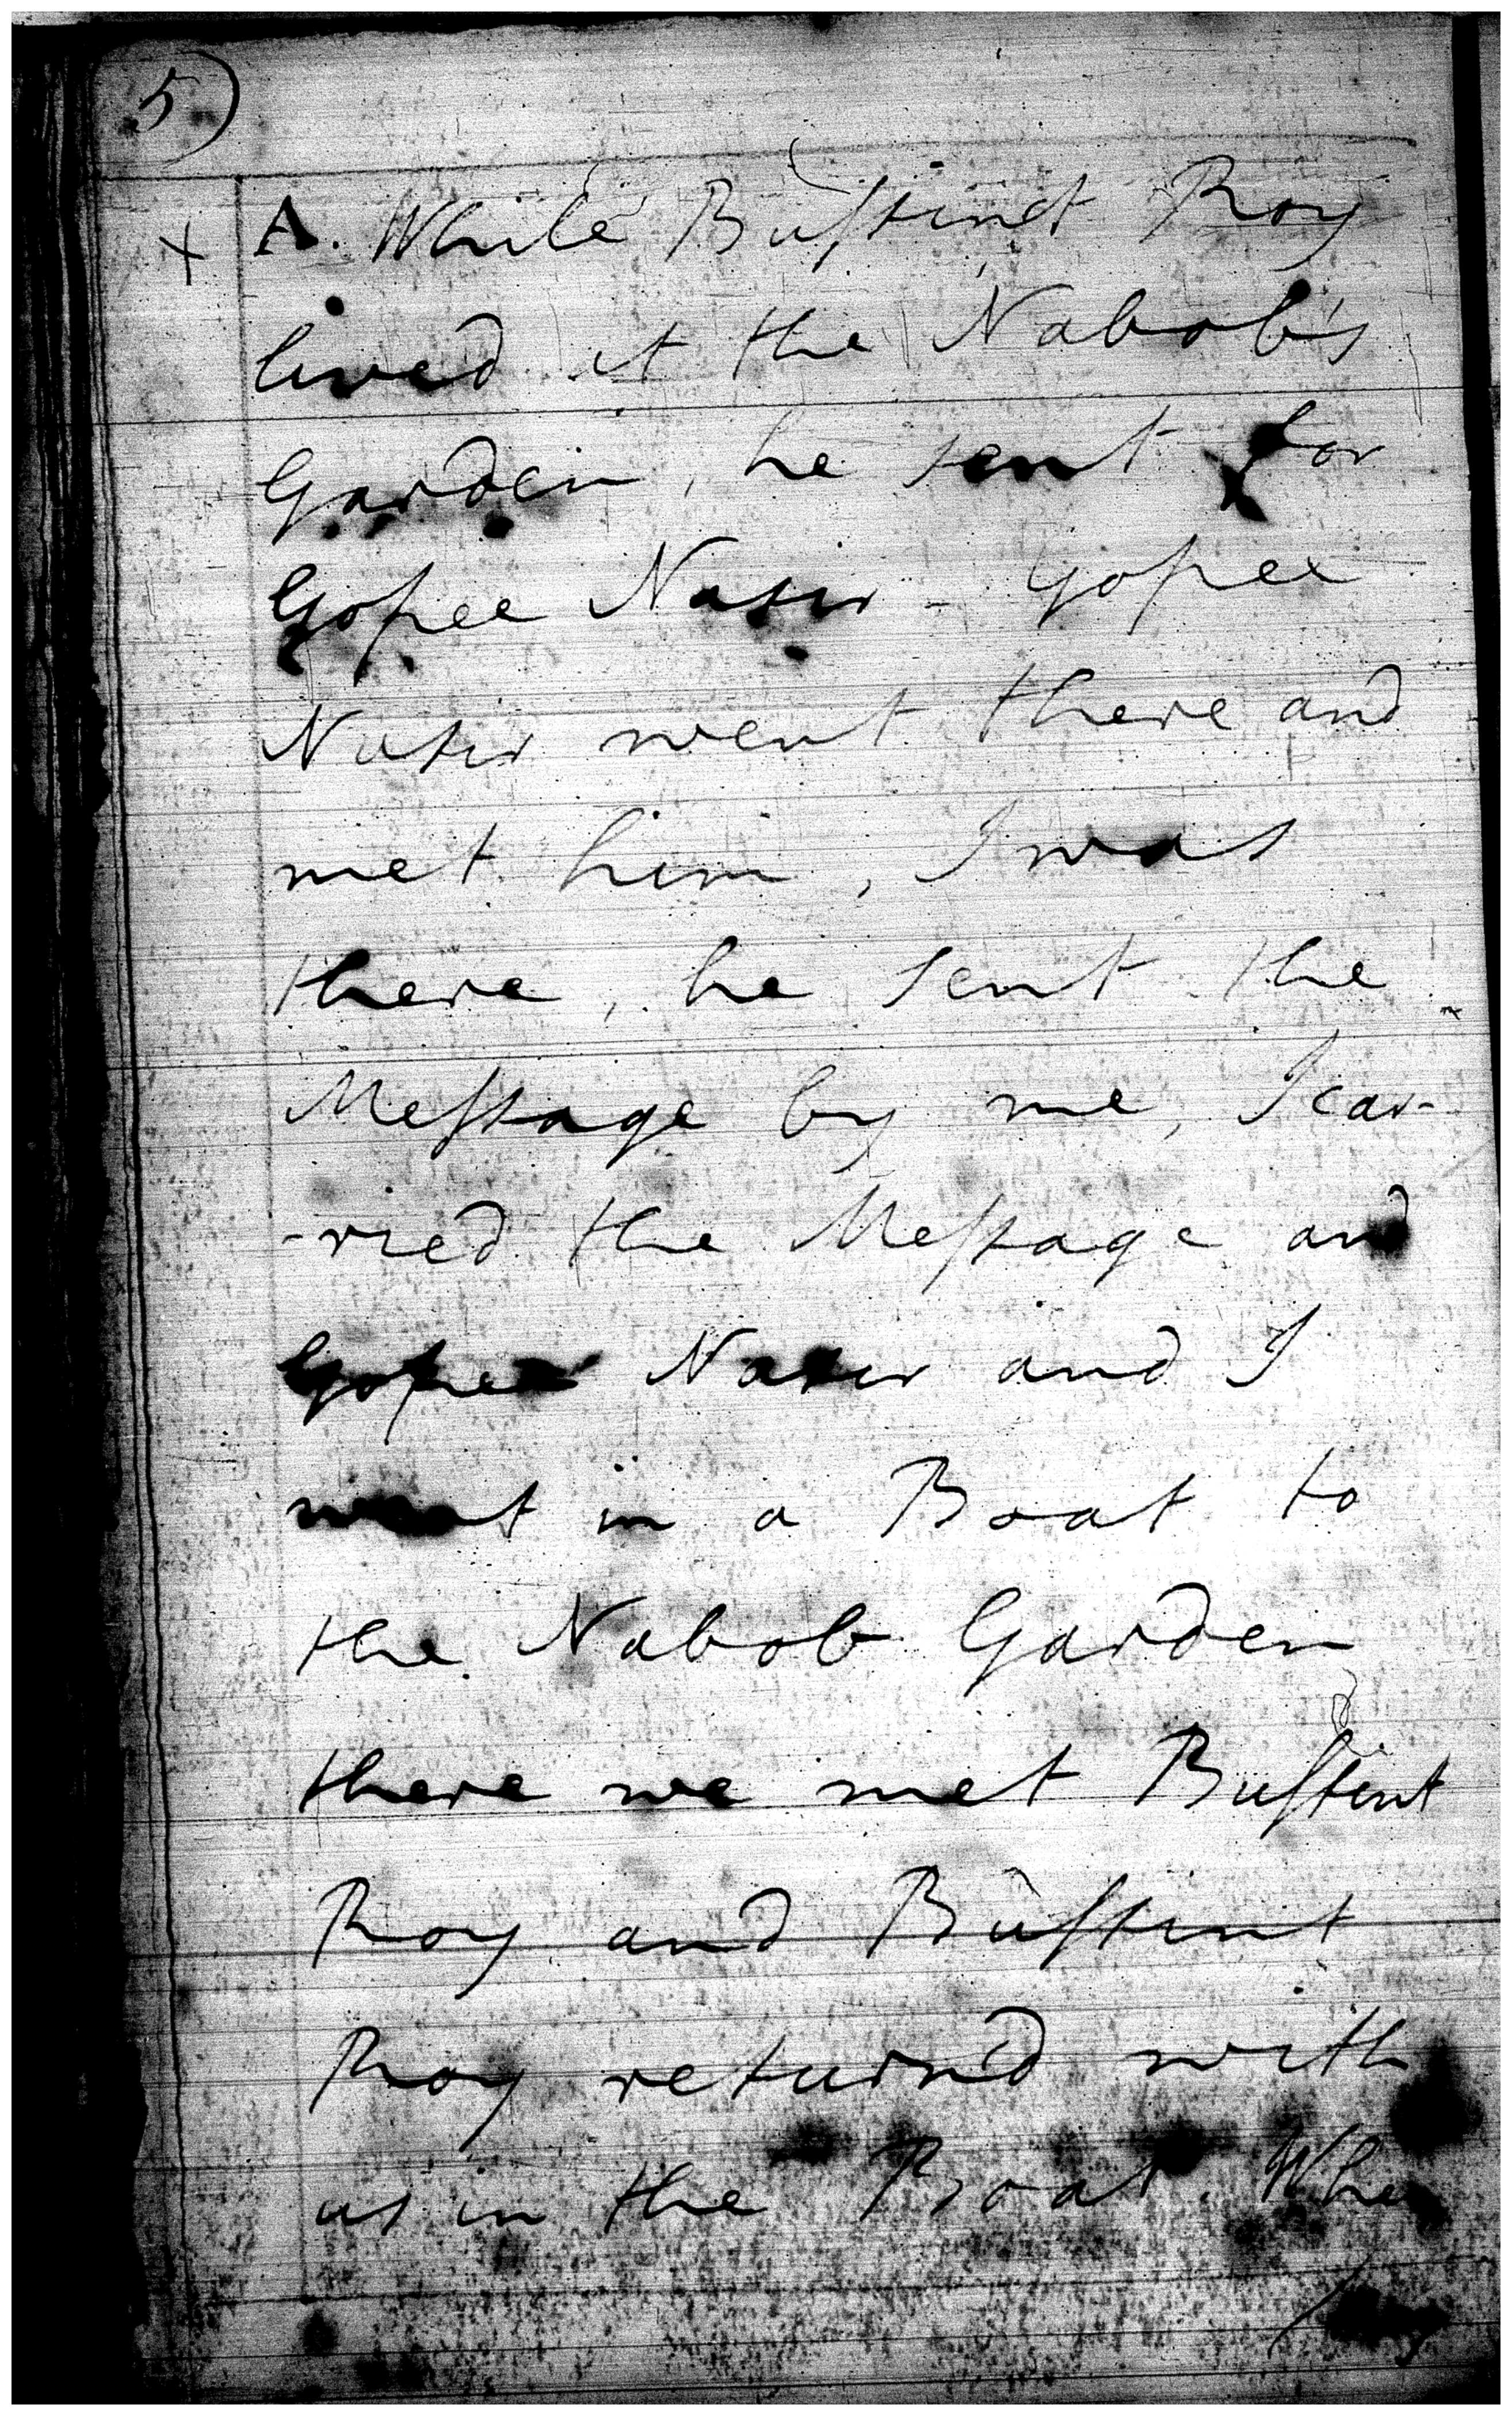 5)
+ A. While Bussint Roy
lived at the Nabob's
Garden, he sent for
Gopee Nasir - Gopee
Nasir went there and
met him, I was
there, he sent the
Message by me, I car-
-ried the Message and
Gopee Nasir and I
went in a Boat to
the Nabob Garden
there we met Bussint
Roy and Bussint
Roy returnd with
us in the Boat. When